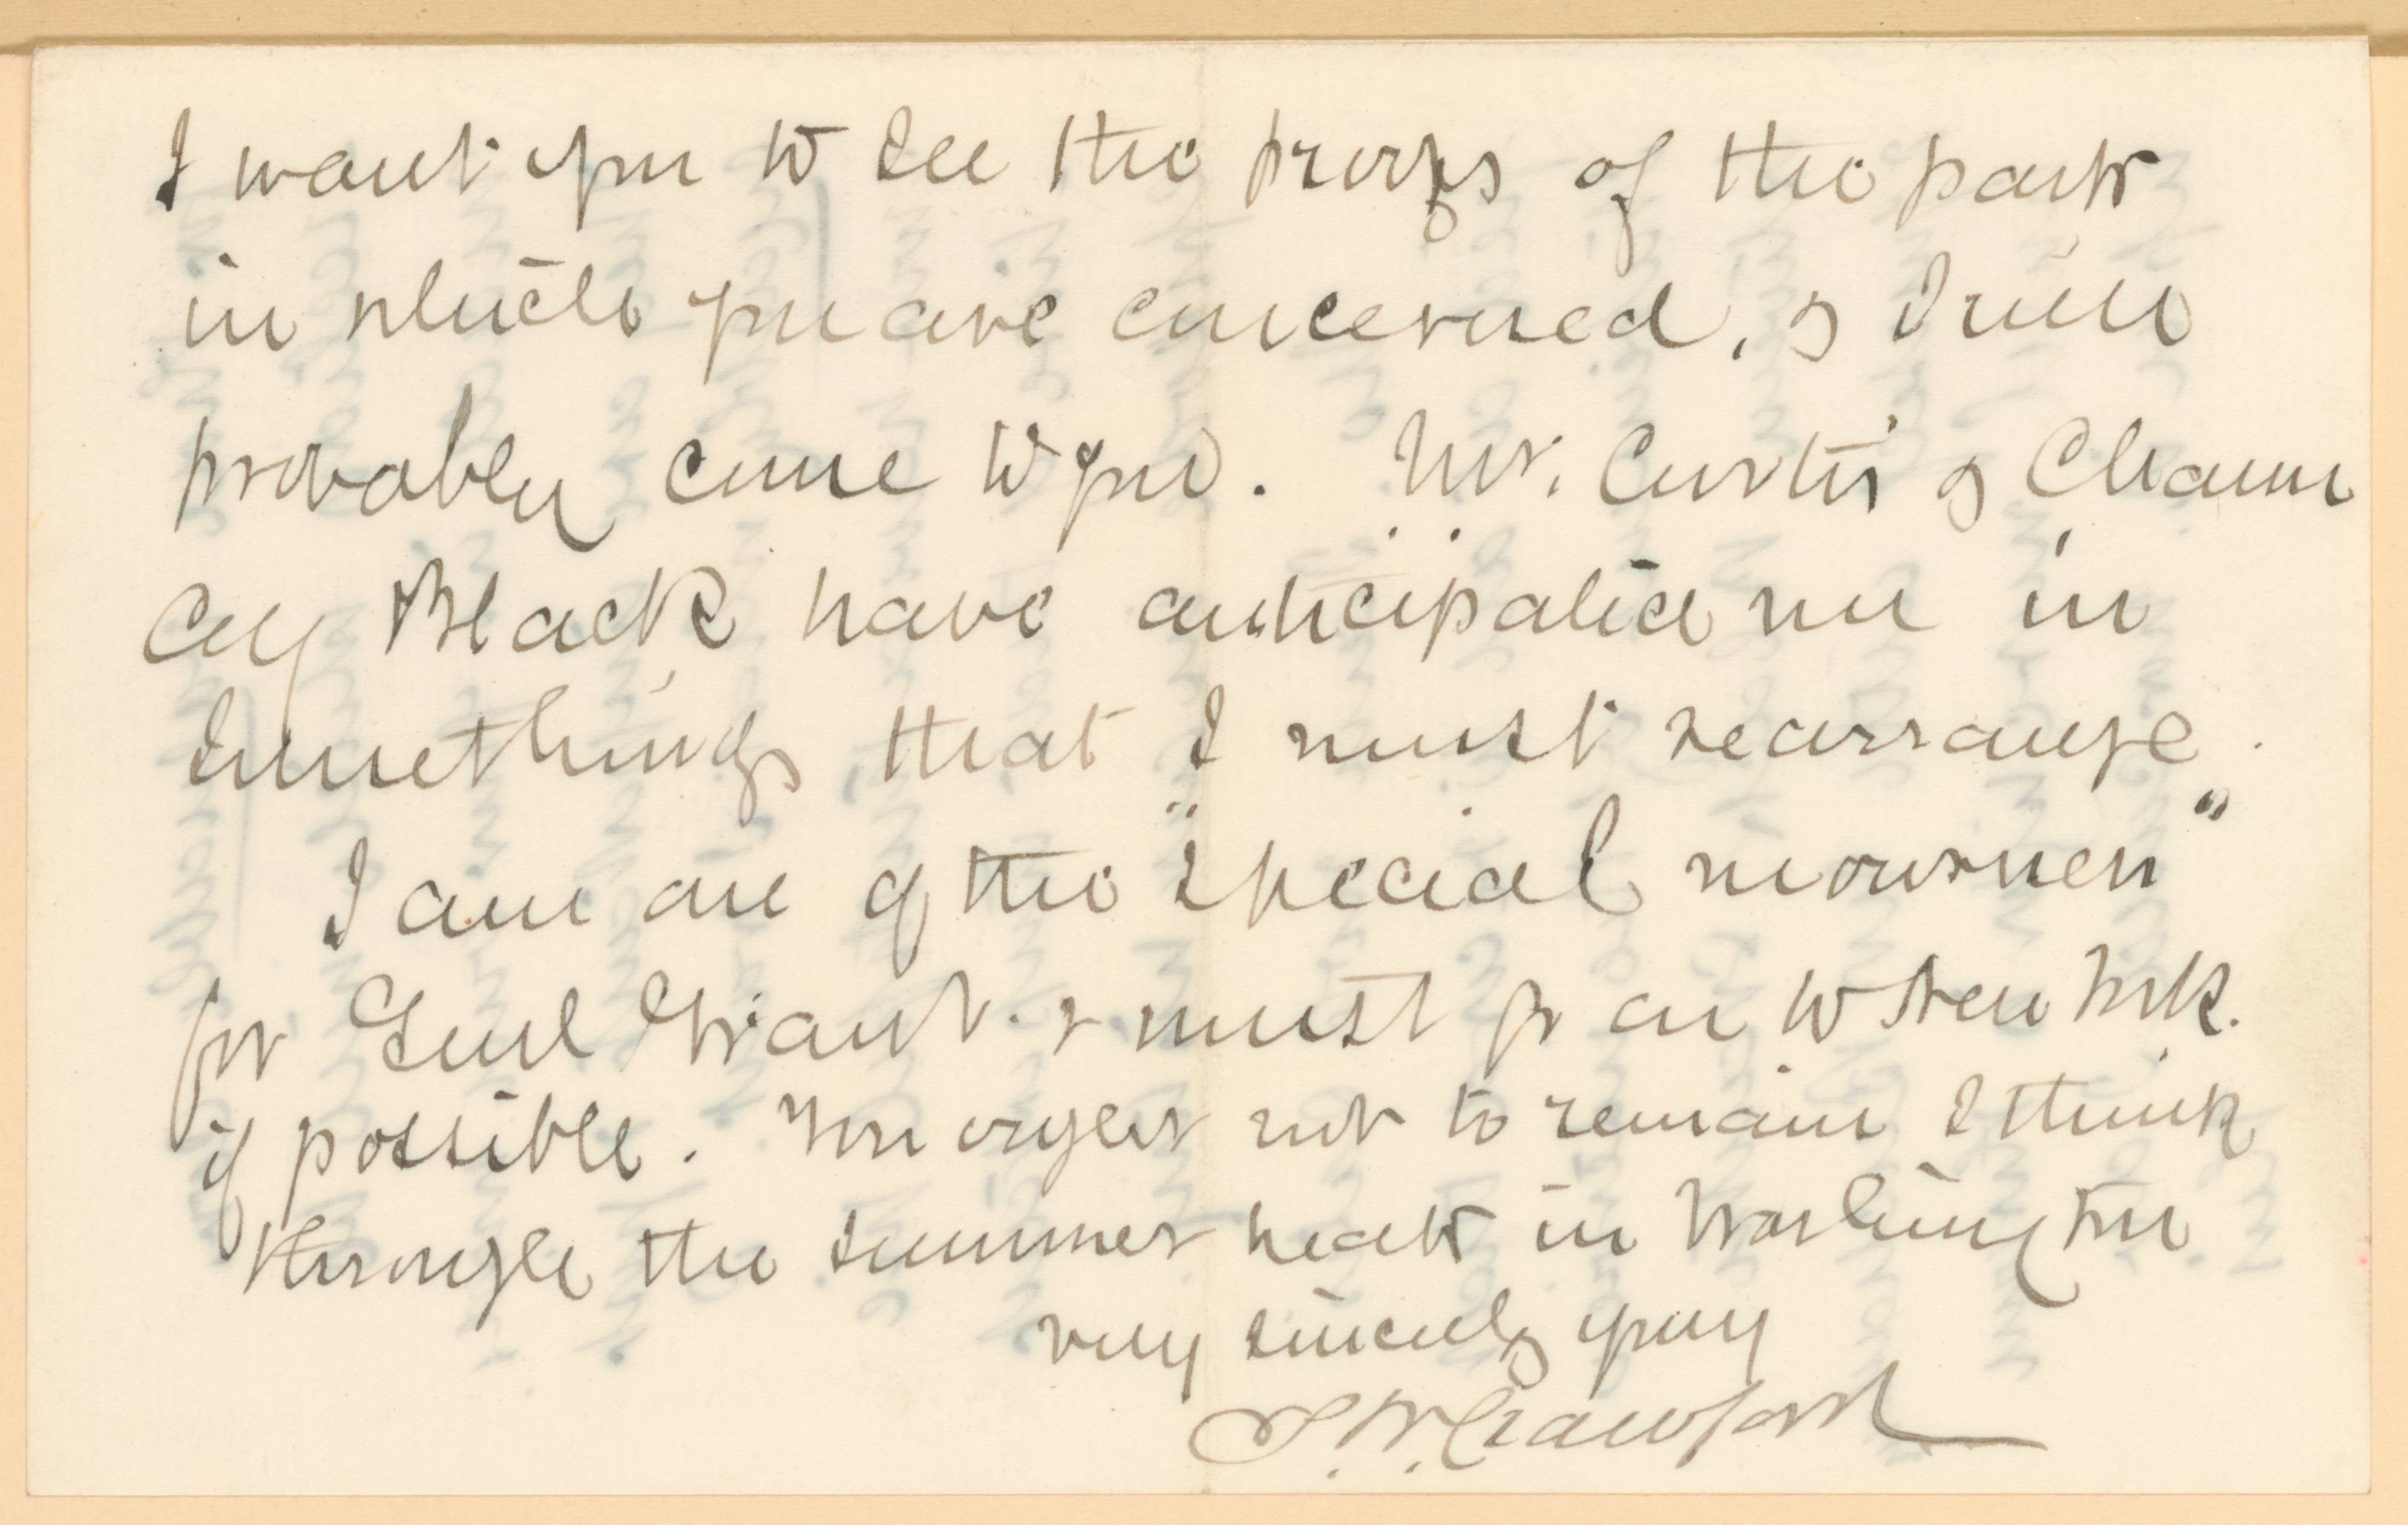 I want you to see the proofs of the parts
in which you are concerned, & I will
probably come to you. Mr. Curtis & Chaun
cey Black have anticipated me in
somethings that I must rearrange.
I am one of the "special mourners"
for Genl Grant. & must go on to New York.
if possible. You ought not to remain I think
through the summer heats in Washington
very sincerely yours
S. W. Crawford